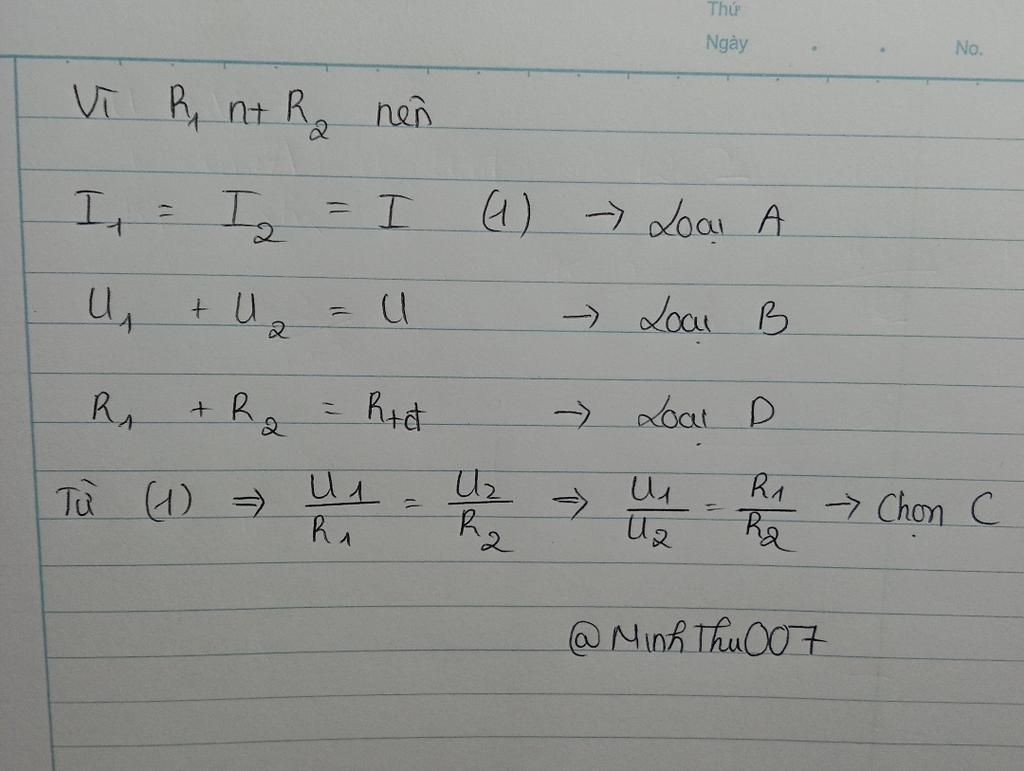 Thứ
Ngày . . No.
Vì R₁ nt R₂ nên
I₁ = I₂ = I (1) → Loại A
U₁ + U₂ = U → Loại B
R₁ + R₂ = Rtđ → Loại D
Từ (1) ⇒ U₁/R₁ = U₂/R₂ ⇒ U₁/U₂ = R₁/R₂ → Chọn C
@MinhThu007